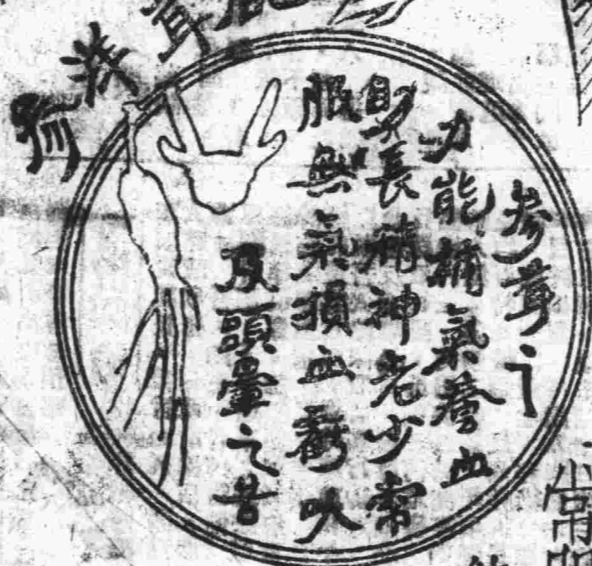 鹿茸
參茸之
功能補氣養血
助長精神老少常
服無氣損血虧以
及頭暈之苦
常